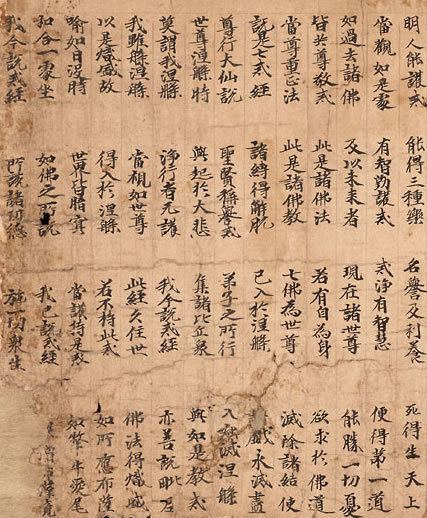 明人能護戒 能得三種樂 名譽及利養 死得生天上
當觀如是處 有智勤護戒 戒淨有智慧 便得第一道
如過去諸佛 及以未來者 現在諸世尊 能勝一切憂
皆共尊敬戒 此是諸佛法 若有自為身 欲求於佛道
當尊重正法 此是諸佛教 七佛為世尊 滅除諸結使
說是七戒經 諸縛得解脫 已入於涅槃 戲永滅盡
尊行大仙說 聖賢稱譽戒 弟子之所行 入寂滅涅槃
世尊涅槃時 興起於大悲 集諸比丘眾 與如是教戒
莫謂我涅槃 淨行者无護 我今說戒經 亦善說毗尼
我雖般涅槃 當視如世尊 此經久住世 佛法得熾盛
以是熾盛故 得入於涅槃 若不持此戒 如所應布薩
喻如日沒時 世界皆暗冥 當護持是戒 如犛牛愛尾
和合一處坐 如佛之所說 我已說戒經 眾僧布薩竟
我今說戒經 所說諸功德 施一切眾生